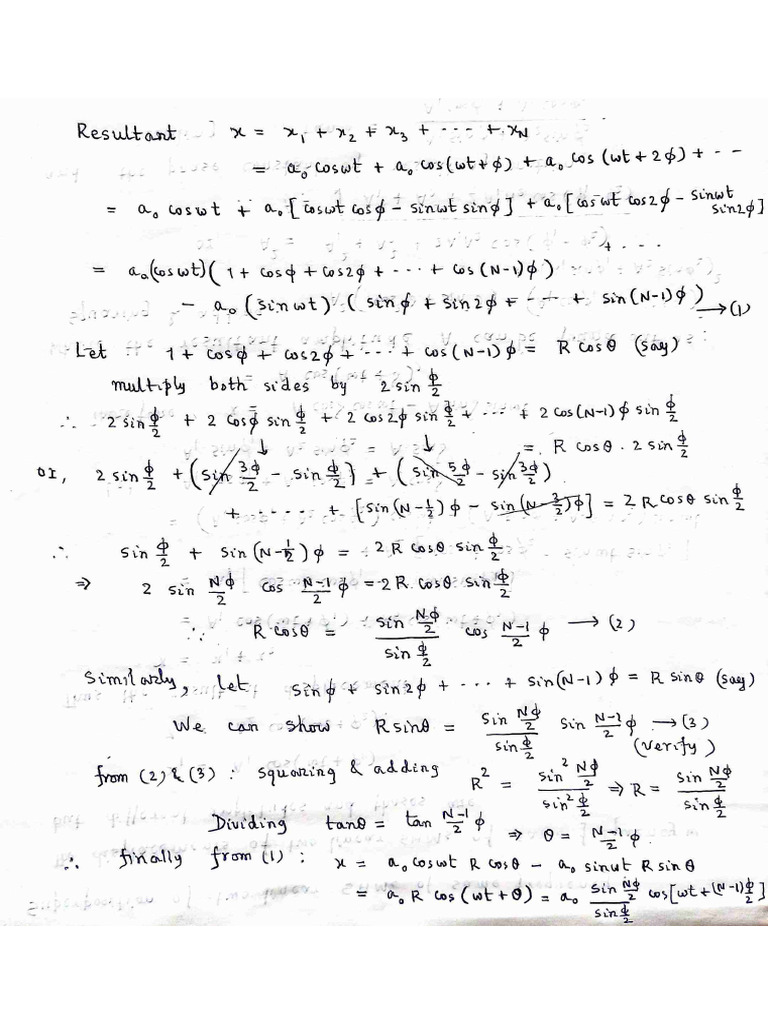 Resultant x = x₁ + x₂ + x₃ + ---- + x_N
= a₀ cosωt + a₀ cos(ωt+ϕ) + a₀ cos (ωt+2ϕ) + --
= a₀ cosωt + a₀ [cosωt cosϕ – sinωt sinϕ] + a₀[cosωt cos2ϕ – sinωt sin2ϕ]
+ ....
= a₀(cosωt) (1 + cosϕ + cos2ϕ + --- + cos (N-1)ϕ)
– a₀ (sinωt) (sinϕ + sin2ϕ + --- + sin(N-1)ϕ) → (1)
Let 1 + cosϕ + cos2ϕ + --- + cos(N-1)ϕ = R cosθ (say)
multiply both sides by 2 sin ϕ/2
∴ 2 sin ϕ/2 + 2 cosϕ sin ϕ/2 + 2 cos2ϕ sin ϕ/2 + --- + 2 cos(N-1)ϕ sin ϕ/2
= R cosθ . 2 sin ϕ/2
or, 2 sin ϕ/2 + (sin 3ϕ/2 – sin ϕ/2) + (sin 5ϕ/2 – sin 3ϕ/2)
+ ----- + [sin(N-1/2)ϕ – sin(N-3/2)ϕ] = 2 R cosθ sin ϕ/2
∴ sin ϕ/2 + sin(N-1/2)ϕ = 2R cosθ sin ϕ/2
⇒ 2 sin Nϕ/2 cos N-1/2 ϕ = 2R cosθ sin ϕ/2
∴ R cosθ = sin Nϕ/2 / sin ϕ/2 cos N-1/2 ϕ → (2)
Similarly, let sinϕ + sin2ϕ + --- + sin(N-1)ϕ = R sinθ (say)
We can show R sinθ = sin Nϕ/2 / sin ϕ/2 sin N-1/2 ϕ → (3)
(verify)
from (2) & (3) : squaring & adding R² = sin² Nϕ/2 / sin² ϕ/2 ⇒ R = sin Nϕ/2 / sin ϕ/2
Dividing tanθ = tan N-1/2 ϕ ⇒ θ = N-1/2 ϕ.
∴ finally from (1) : x = a₀ cosωt R cosθ – a₀ sinωt R sinθ
= a₀ R cos (ωt + θ) = a₀ sin Nϕ/2 / sin ϕ/2 cos[ωt + (N-1) ϕ/2]